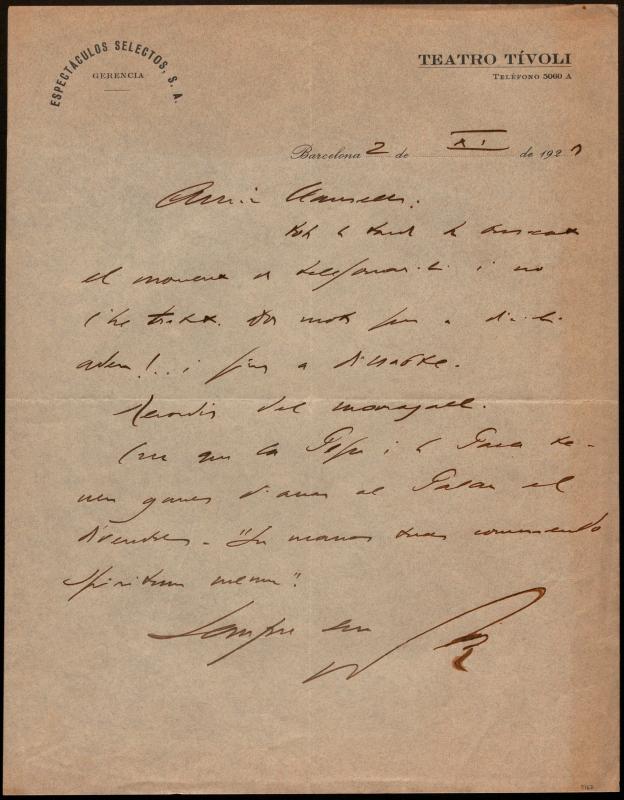 ESPECTÁCULOS SELECTOS, S. A.
GERENCIA
TEATRO TÍVOLI
TELÉFONO 5060 A
Barcelona 2 de XI de 192
tota la tarda he buscat
el moment de telefonar-li i no
l'he trobat. Dos mots per a dir-li
adeu!.. i fins a dissabte.
Records del maragall.
Crec que la Pepa i la Paca te-
nen ganes d'anar al Palau el
divendres. "In manos tuas commendo
spiritum meum".
Sempre seu
7167